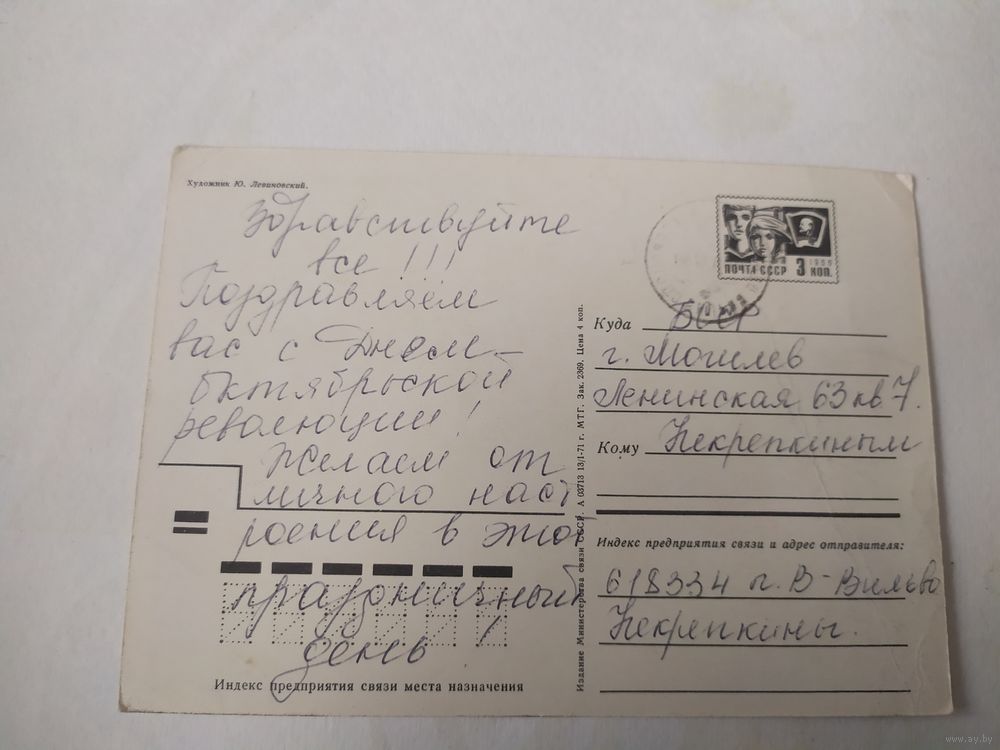 Художник Ю. Левиновский.
Здравствуйте
все !!!
Поздравляем
вас с Днем
Октябрьской
революции!
Желаем от
личного наст
роения в этот
праздничный
день!
Индекс предприятия связи места назначения
Издание Министерства связи СССР. А 03713 13/1-71 г. МТГ. Зак. 2369. Цена 4 коп.
ПОЧТА СССР 3 КОП.
1966
Куда БССР
г. Могилев
Ленинская 63 кв 7.
Кому Некрепкиным
Индекс предприятия связи и адрес отправителя:
618334 п. В-Вильва
Некрепкины.
www.ay.by